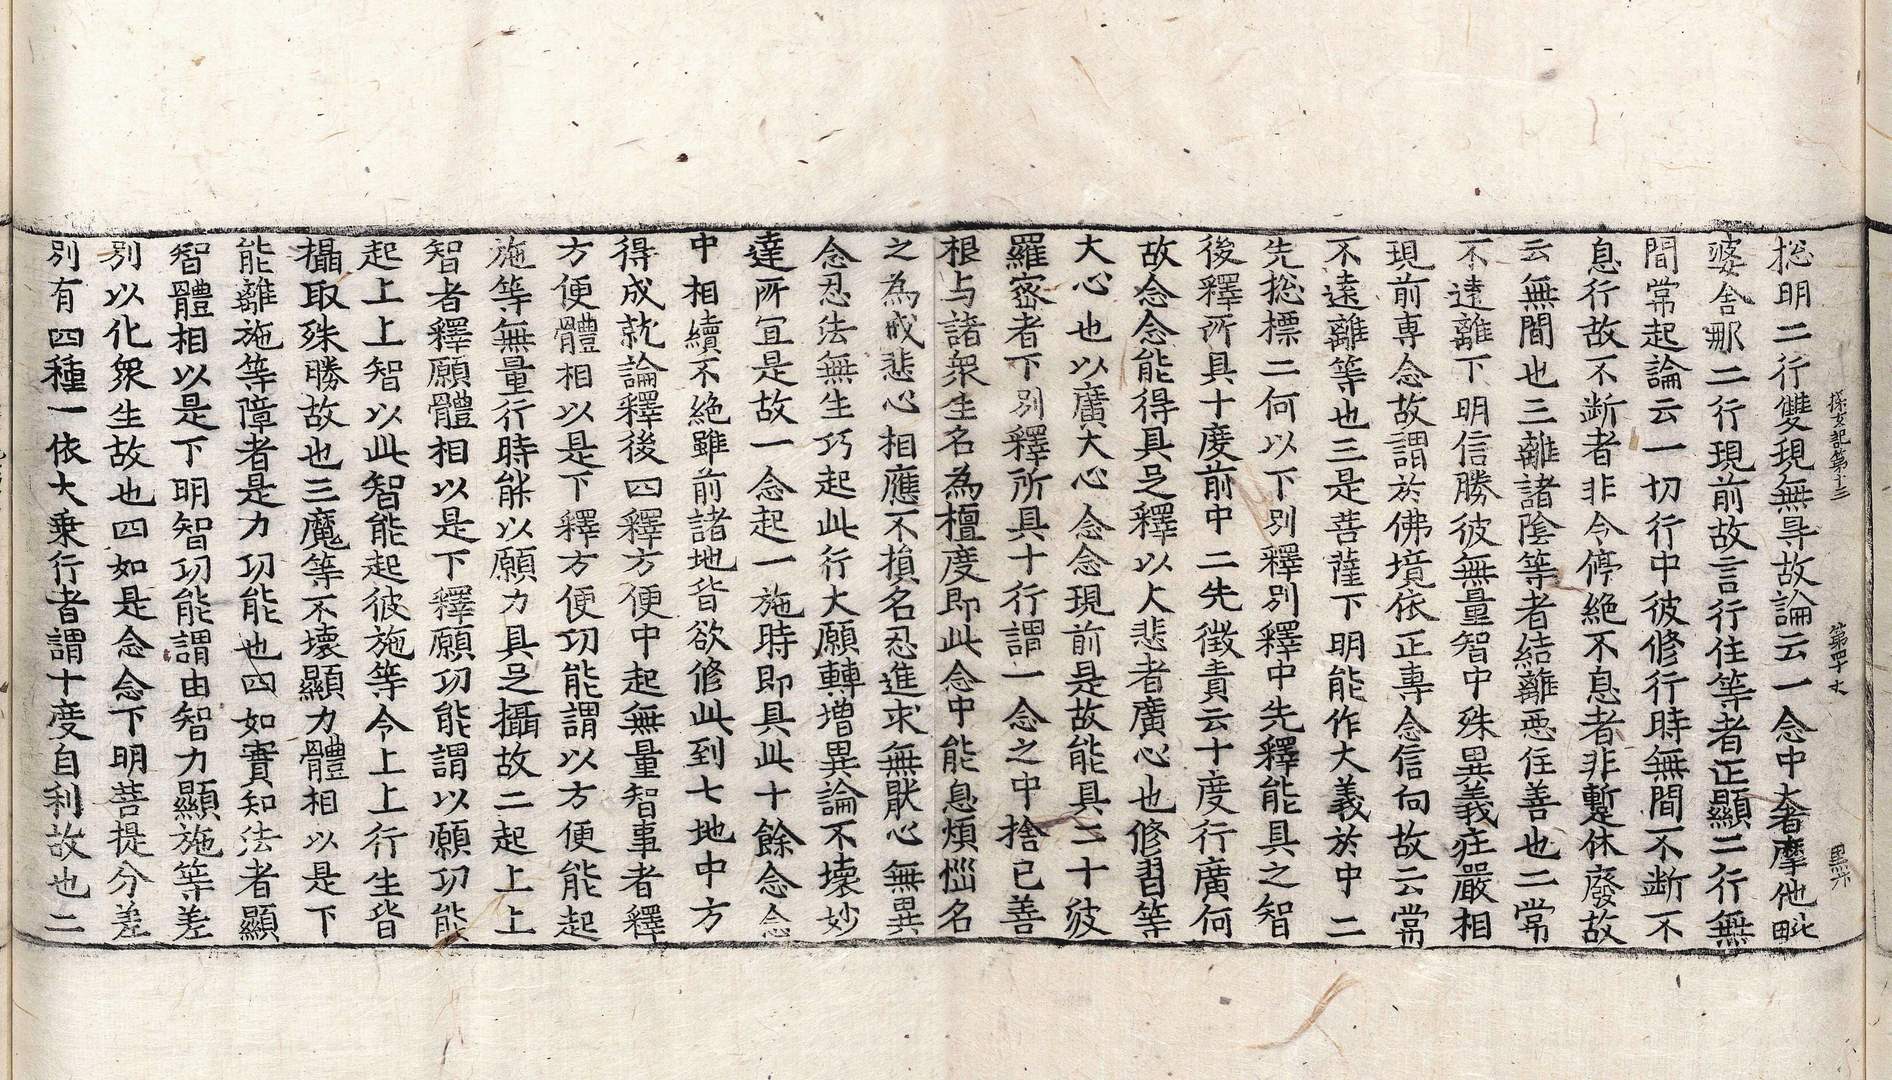 探玄記第十三 第四十丈 黑六
捴明二行雙現無㝵故論云一念中奢摩他毗
婆舍那二行現前故言行住等者正顯二行無
間常起論云一切行中彼修行時無間不断不
息行故不断者非令停絶不息者非蹔休廢故
云無間也三離諸陰等者結離惡住善也二常
不遠離下明信勝彼無量智中殊異義莊嚴相
現前專念故謂於佛境依正專念信向故云常
不遠離等也三是菩薩下明能作大義於中二
先捴標二何以下別釋別釋中先釋能具之智
後釋所具十度前中二先徵責云十度行廣何
故念念能得具足釋以大悲者廣心也修習等
大心也以廣大心念念現前是故能具二十波
羅密者下別釋所具十行謂一念之中捨已善
根与諸衆生名為檀度即此念中能息煩惱名
之為戒悲心相應不損名忍進求無猒心無異
念忍法無生巧起此行大願轉增異論不壞妙
達所宜是故一念起一施時即具此十餘念念
中相續不絶雖前諸地皆欲修此到七地中方
得成就論釋後四釋方便中起無量智事者釋
方便體相以是下釋方便功能謂以方便能起
施等無量行時能以願力具足攝故二起上上
智者釋願體相以是下釋願功能謂以願功能
起上上智以此智能起彼施等令上上行生皆
攝取殊勝故也三魔等不壞顯力體相以是下
能離施等障者是力功能也四如實知法者顯
智體相以是下明智功能謂由智力顯施等差
別以化衆生故也四如是念念下明菩提分差
別有四種一依大乗行者謂十度自利故也二